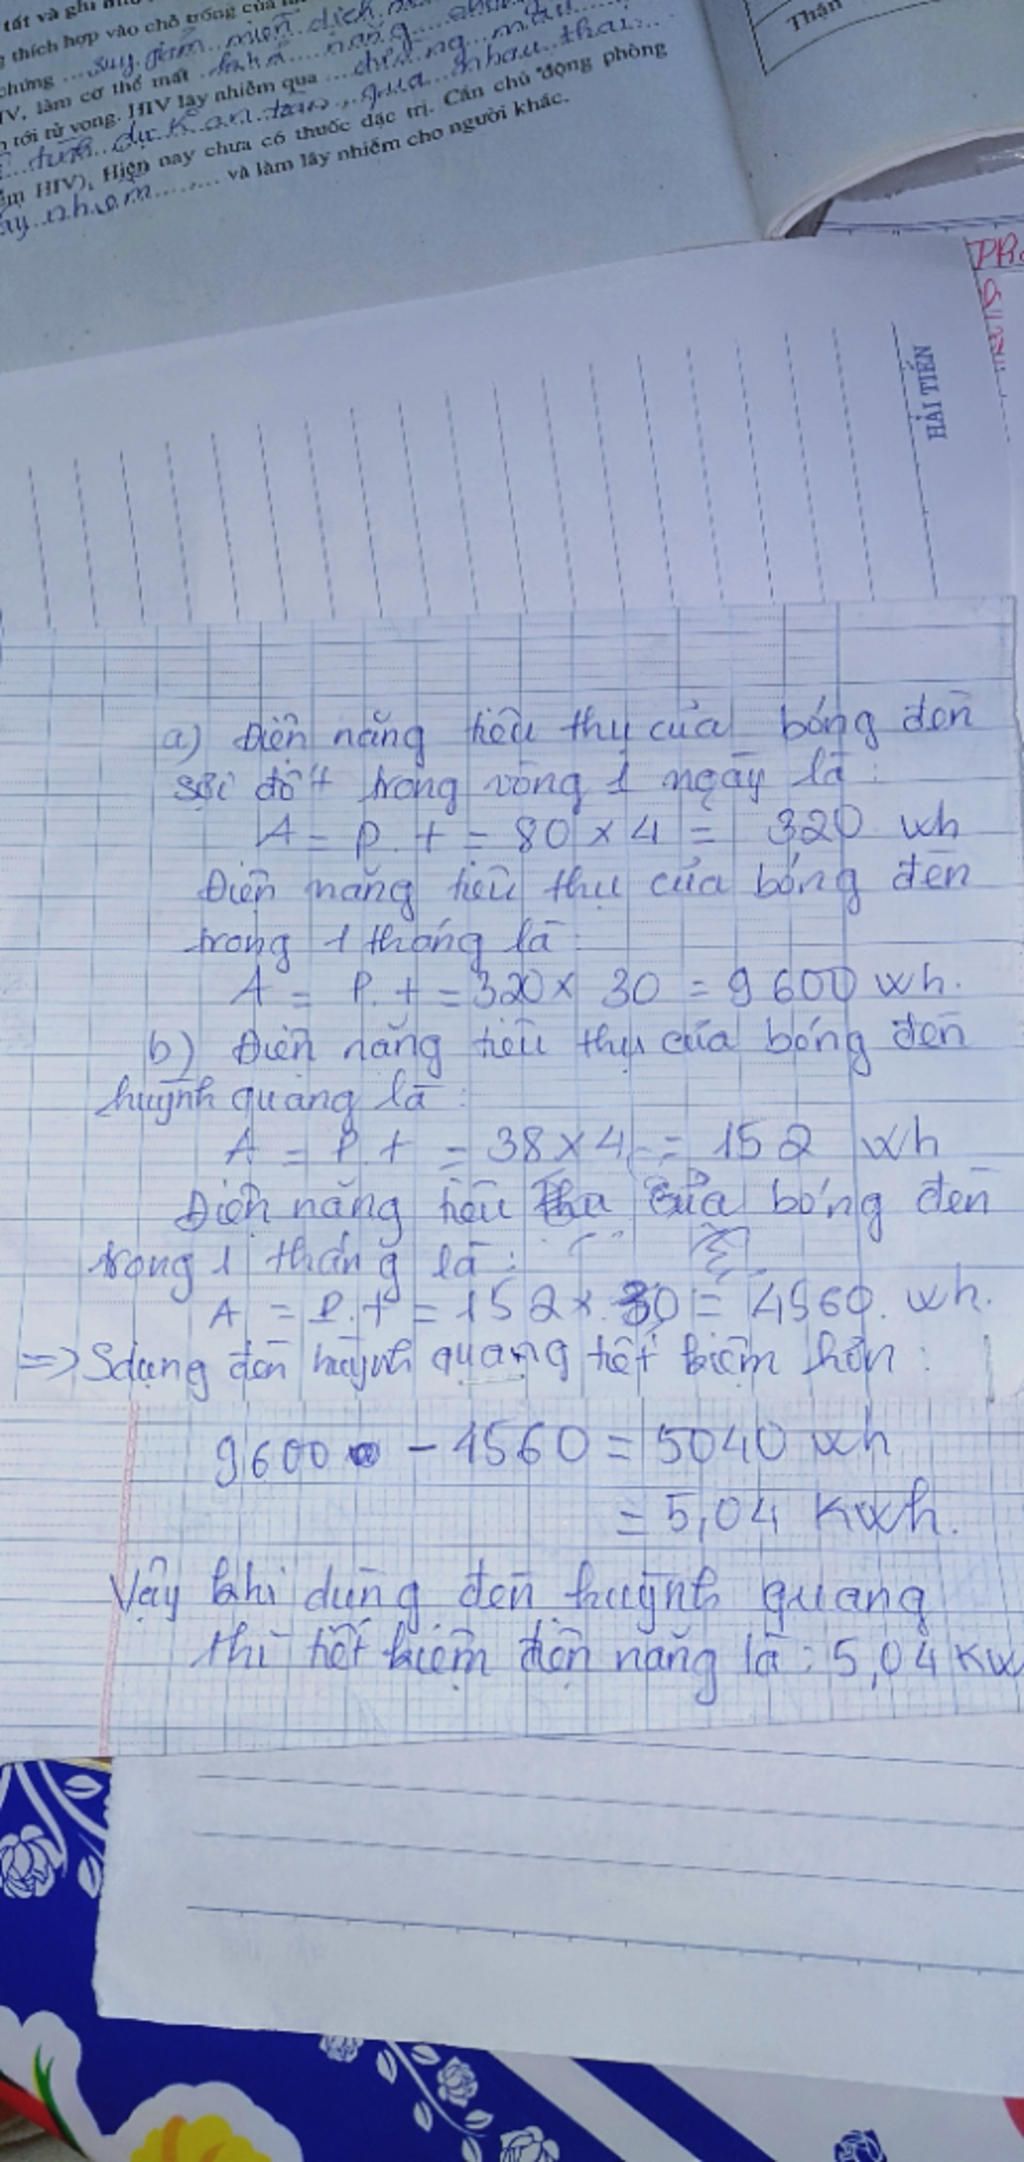 tất và ghi nhớ
thích hợp vào chỗ trống của
chứng ...suy giảm miễn dịch
IV, làm cơ thể mất ...khả năng
tới tử vong. HIV lây nhiễm qua ...đường máu
tình dục k an toàn, qua nhau thai...
HIV), Hiện nay chưa có thuốc đặc trị. Cần chủ động phòng
nhiễm........ và làm lây nhiễm cho người khác.
Thận
HẢI TIẾN
a) Điện năng tiêu thụ của bóng đèn
sợi đốt trong vòng 1 ngày là :
A = P. t = 80 x 4 = 320 wh
Điện năng tiêu thụ của bóng đèn
trong 1 tháng là :
A = P. t = 320 x 30 = 9 600 wh.
b) Điện năng tiêu thụ của bóng đèn
huỳnh quang là :
A = P. t = 38 x 4 = 152 wh
Điện năng tiêu thu của bóng đèn
trong 1 tháng là :
A = P. t = 152 x 30 = 4560. wh.
=> Sdụng đèn huỳnh quang tiết kiệm hơn :
9600 - 4560 = 5040 wh
= 5,04 Kwh.
Vậy khi dùng đèn huỳnh quang
thì tiết kiệm điện năng là : 5,04 Kw